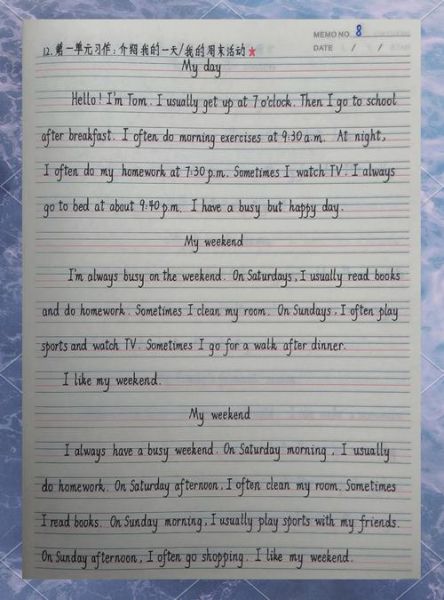 MEMO NO. 8
12.第一单元习作:介绍我的一天/我的周末活动★
DATE / /
My day
Hello! I'm Tom. I usually get up at 7 o'clock. Then I go to school
after breakfast. I often do morning exercises at 9:30 a.m. At night,
I often do my homework at 7:30 p.m. Sometimes I watch TV. I always
go to bed at about 9:40 p.m. I have a busy but happy day.
My weekend
I'm always busy on the weekend. On Saturdays, I usually read books
and do homework. Sometimes I clean my room. On Sundays, I often play
sports and watch TV. Sometimes I go for a walk after dinner.
I like my weekend.
My weekend
I always have a busy weekend. On Saturday morning, I usually
do homework. On Saturday afternoon, I often clean my room. Sometimes
I read books. On Sunday morning, I usually play sports with my friends.
On Sunday afternoon, I often go shopping. I like my weekend.